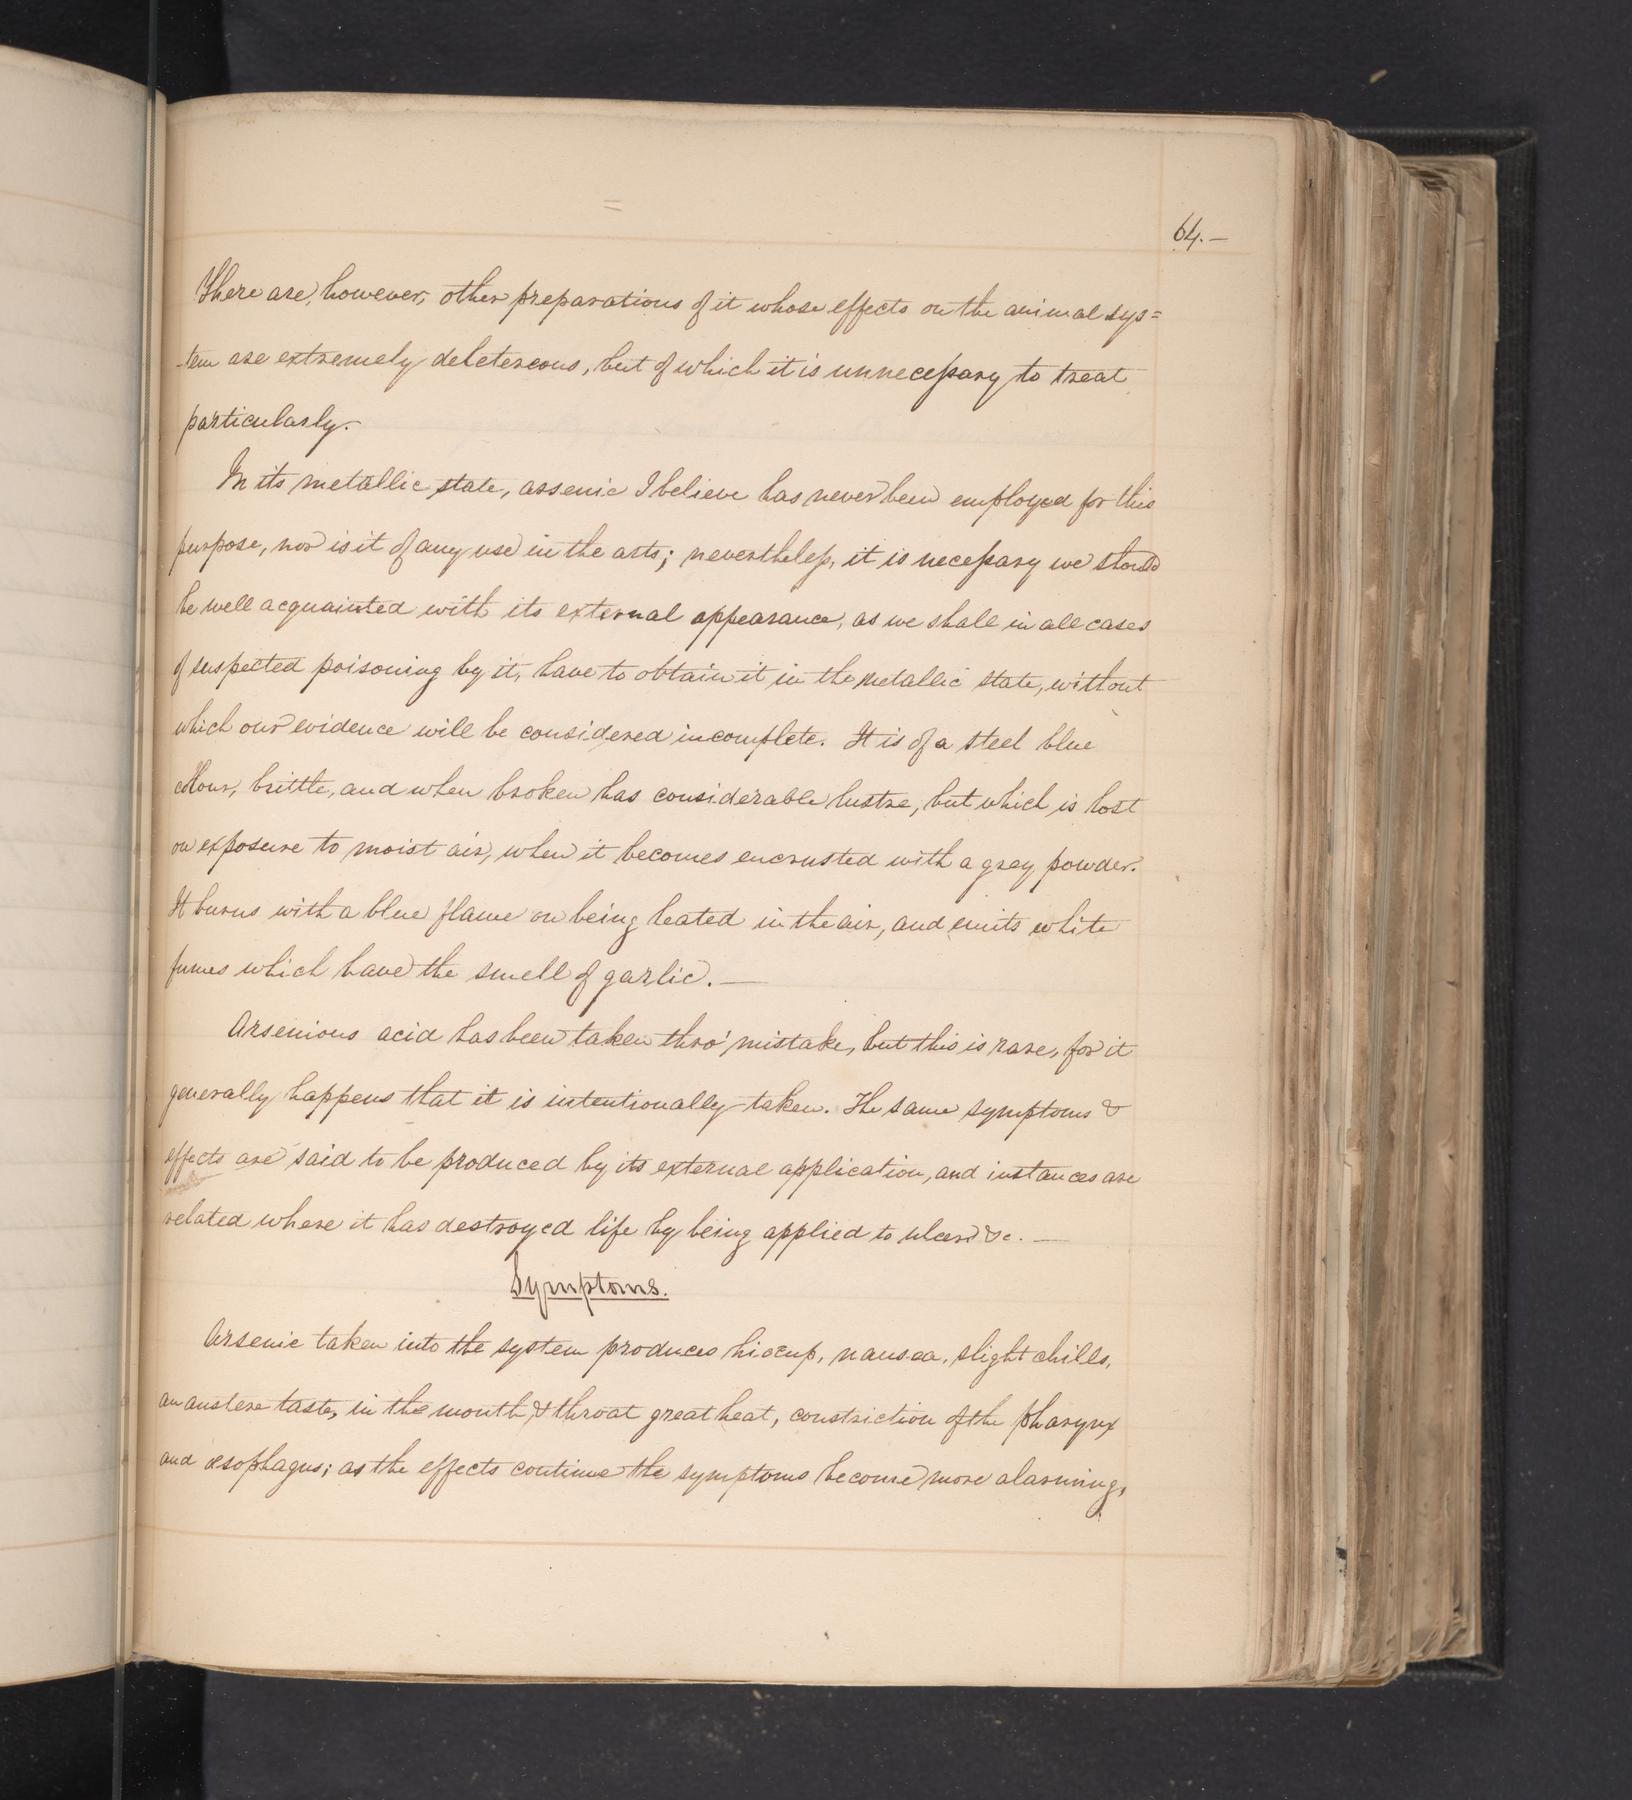 64.—
There are, however, other preparations of it whose effects on the animal sys=
-tem are extremely deletereous, but of which it is unnecessary to treat
particularly.-
In its metallic state, arsenic I believe has never been employed for this
purpose, nor is it of any use in the arts; nevertheless, it is necessary we should
be well acquainted with its external appearance, as we shall in all cases
of suspected poisoning by it, have to obtain it in the metallic state, without
which our evidence will be considered incomplete. It is of a steel blue
colour, brittle, and when broken has considerable lustre, but which is lost
on exposure to moist air, when it becomes encrusted with a grey powder.
It burns with a blue flame on being heated in the air, and emits white
fumes which have the smell of garlic.—
Arsenious acid has been taken thro' mistake, but this is rare, for it
generally happens that it is intentionally taken. The same symptoms &
effects are said to be produced by its external application, and instances are
related where it has destroyed life by being applied to ulcers &c.—
Symptoms.
Arsenic taken into the system produces hiccup, nausea, slight chills,
an austere taste, in the mouth & throat great heat, constriction of the pharynx
and œsophagus; as the effects continue the symptoms become more alarming,